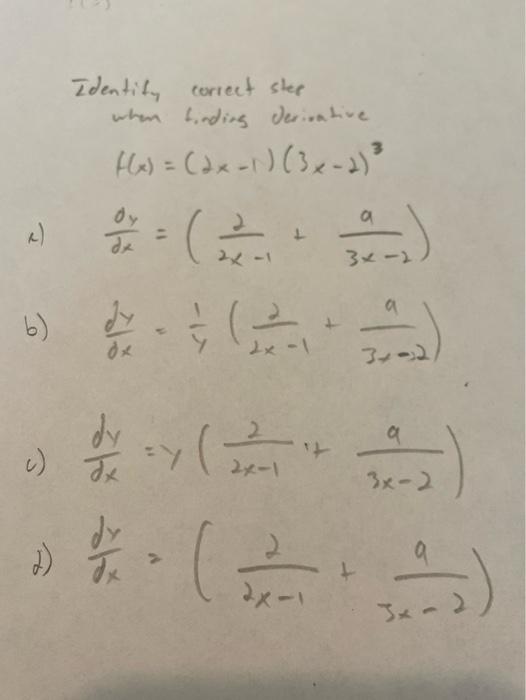 Identify correct step
when finding derivative
f(x) = (2x-1)(3x-2)³
a) dy/dx = (2/(2x-1) + 9/(3x-2))
b) dy/dx = 1/y (2/(2x-1) + 9/(3x-2))
c) dy/dx = y (2/(2x-1) + 9/(3x-2))
d) dy/dx = (2/(2x-1) + 9/(3x-2))